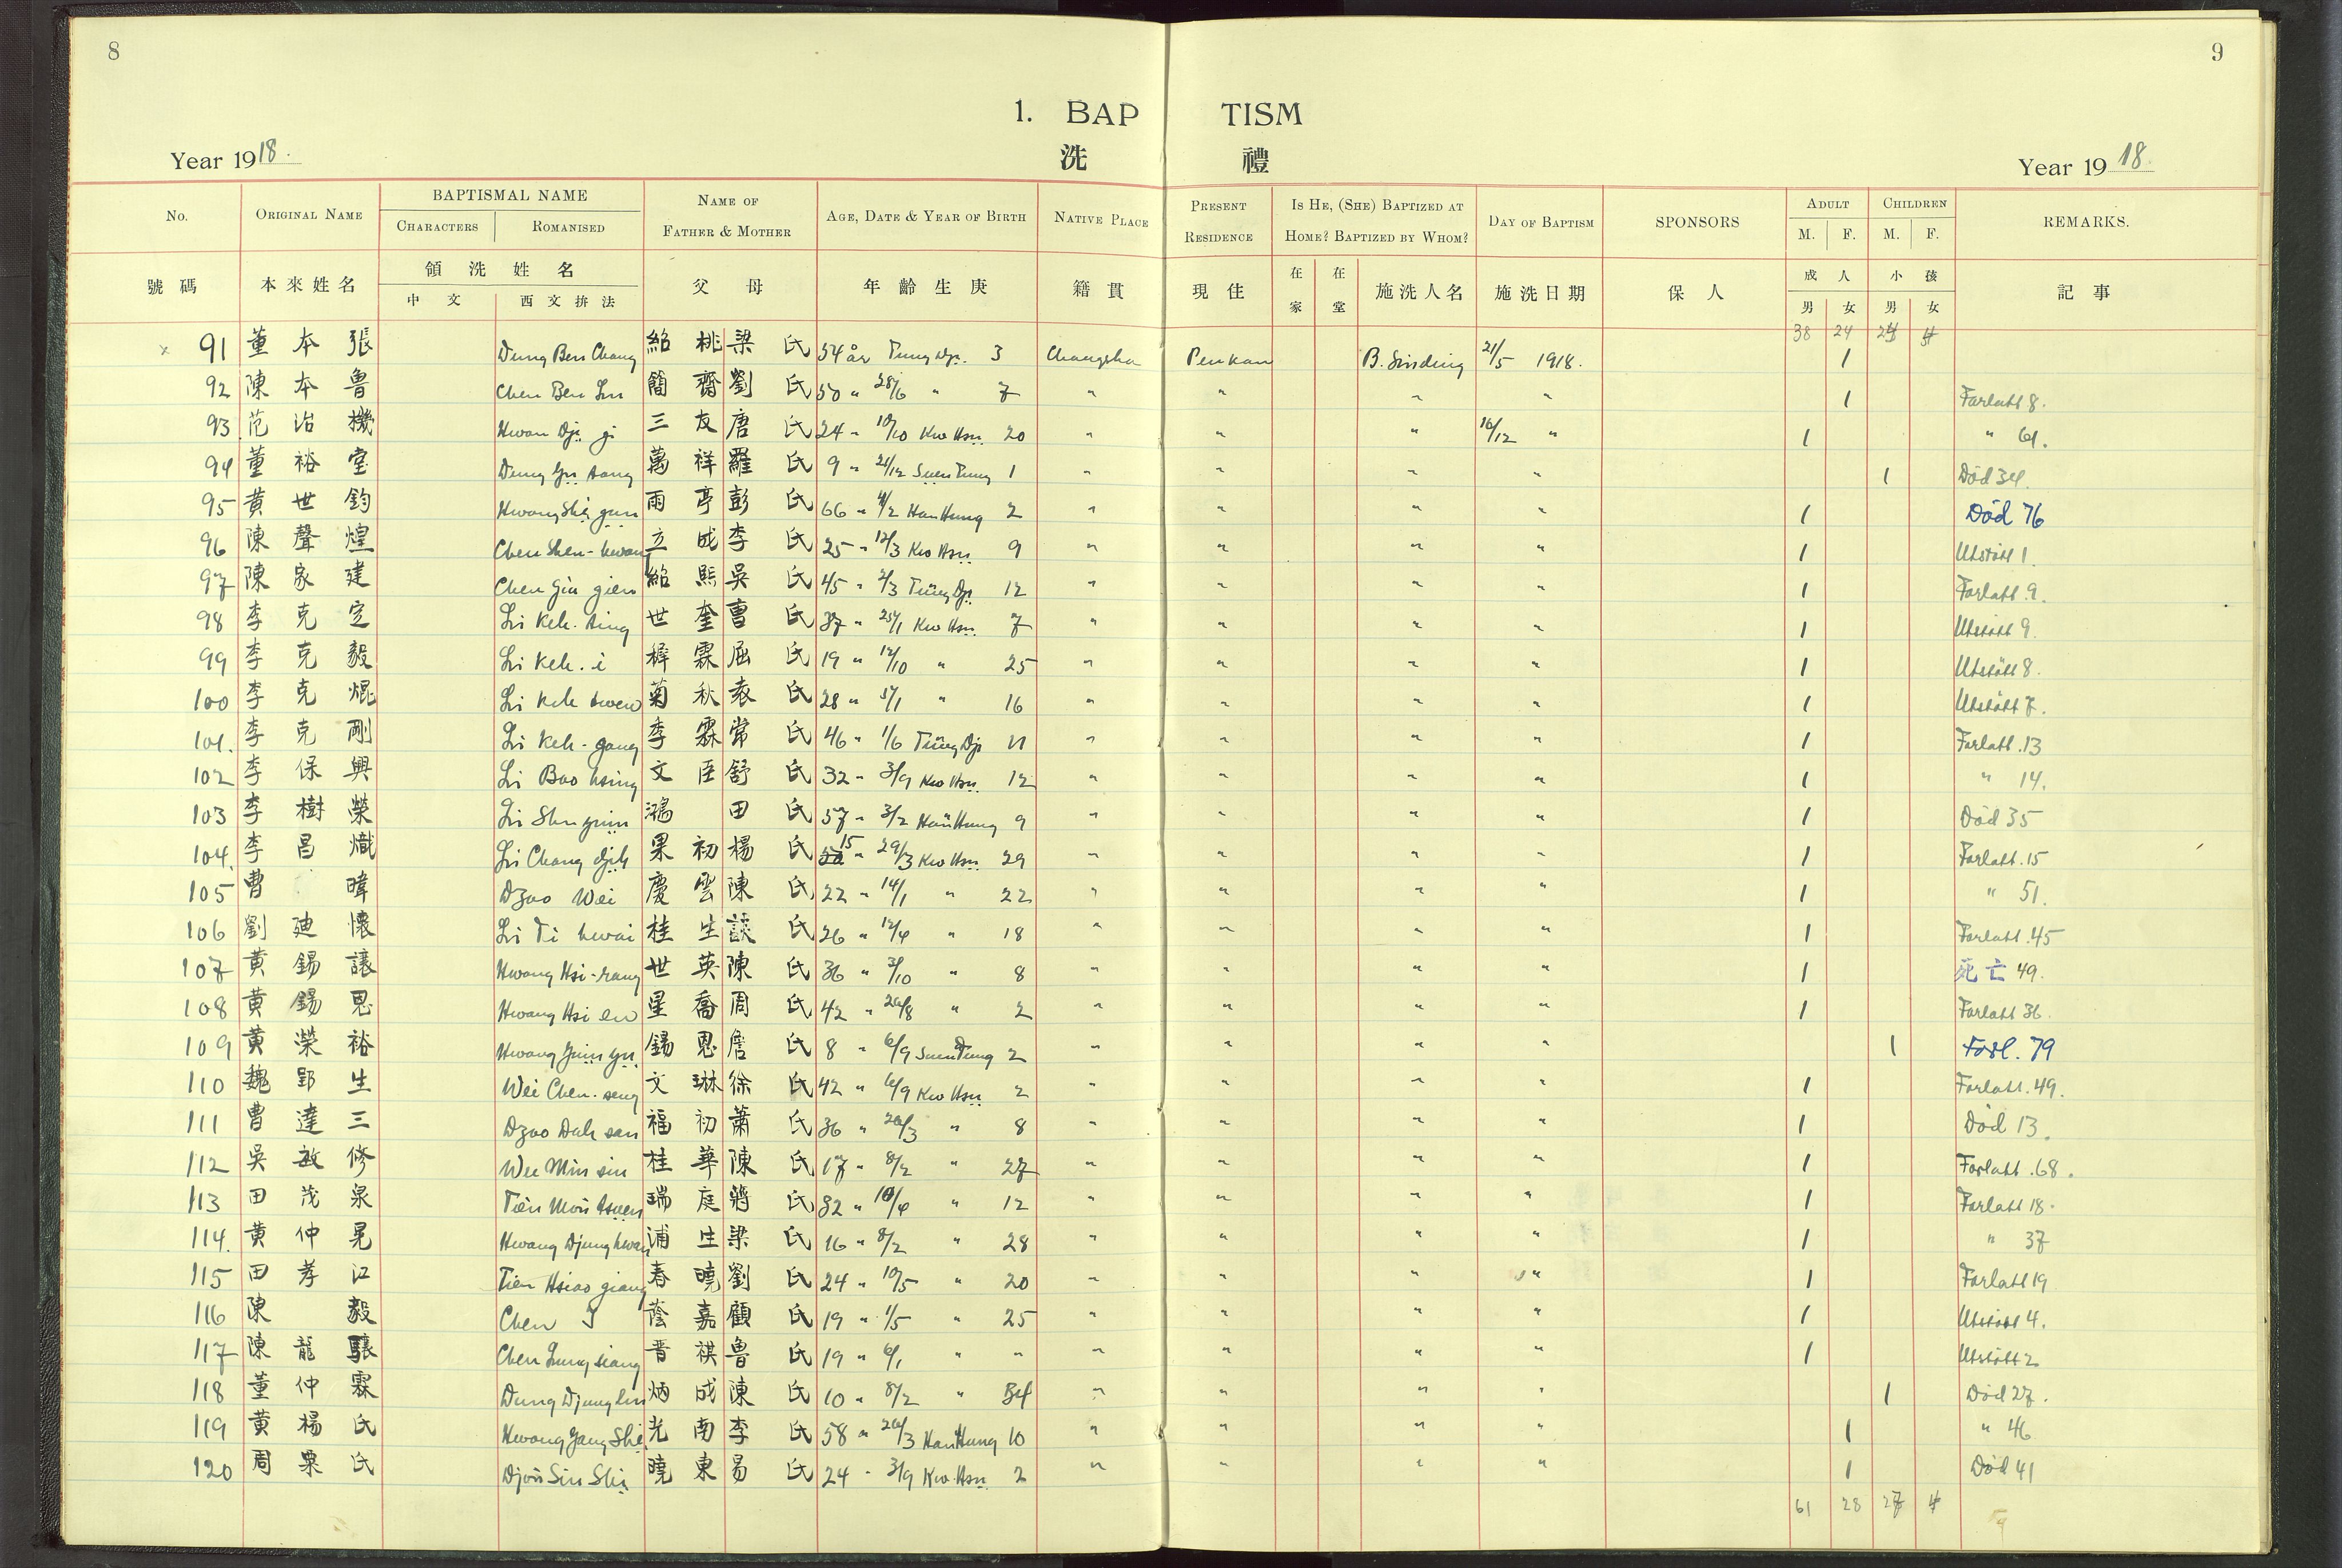 8
9
1. BAPTISM
洗禮
Year 1918.
Year 1918.
No. ORIGINAL NAME BAPTISMAL NAME NAME OF FATHER & MOTHER AGE, DATE & YEAR OF BIRTH NATIVE PLACE PRESENT RESIDENCE IS HE, (SHE) BAPTIZED AT HOME? BAPTIZED BY WHOM? DAY OF BAPTISM SPONSORS ADULT CHILDREN REMARKS.
CHARACTERS ROMANISED M. F. M. F.
號碼 本來姓名 領洗姓名 父母 年齡生庚 籍貫 現住 在家 在堂 施洗人名 施洗日期 保人 成人 小孩 記事
中文 西文拚法 男 女 男 女
38 24 24 4
x 91 董本張 Dung Ben Chang 紹桃 梁氏 54 år Tung Dji 3 Changsha Penkan B. Sinding 21/5 1918. 1
92 陳本魯 Chen Ben Lu 簡齋 劉氏 50 " 28/6 " 7 " " " " 1 Forlatt 8.
93 范治機 Hwan Dji gi 三友 唐氏 24 " 10/10 Kwo Hsü 20 " " " 16/12 " 1 " 61.
94 董裕堂 Dung Yü tang 萬祥 羅氏 9 " 21/12 Suen Tung 1 " " " " 1 Död 34.
95 黃世鈞 Hwang Shï gün 雨亭 彭氏 66 " 4/2 Han Hung 2 " " " " 1 Död 76
96 陳聲煌 Chen Shen-hwang 立成 李氏 25 " 12/3 Kwo Hsü 9 " " " " 1 Utstött 1.
97 陳家建 Chen Gia gien 紹熙 吳氏 45 " 2/3 Tung Dji 12 " " " " 1 Forlatt 9.
98 李克定 Li Keh-ting 世奎 曹氏 37 " 25/1 Kwo Hsü 7 " " " " 1 Utstött 9.
99 李克毅 Li Keh-i 樨霖 屈氏 19 " 12/10 " 25 " " " " 1 Utstött 8.
100 李克焜 Li Keh kwen 菊秋 袁氏 28 " 5/1 " 16 " " " " 1 Utstött 7.
101. 李克剛 Li Keh-gang 季霖 常氏 46 " 1/6 Tung Dji 11 " " " " 1 Forlatt 13
102 李保興 Li Bao hsing 文臣 舒氏 32 " 3/9 Kwo Hsü 12 " " " " 1 " 14.
103 李樹榮 Li Shu yuin 鴻 田氏 57 " 3/2 Han Hung 9 " " " " 1 Död 35
104. 李昌熾 Li Chang djih 果初 楊氏 15 " 29/3 Kwo Hsü 29 " " " " 1 Forlatt 15
105 曹暐 Dzao Wei 慶雲 陳氏 22 " 14/1 " 22 " " " " 1 " 51.
106 劉廸懷 Li Ti hwai 桂生 談氏 26 " 12/4 " 18 " " " " 1 Forlatt 45
107 黃錫讓 Hwang Hsi-rang 世英 陳氏 36 " 3/10 " 8 " " " " 1 死亡 49.
108 黃錫恩 Hwang Hsi en 星喬 周氏 42 " 20/8 " 2 " " " " 1 Forlatt 36.
109 黃濚裕 Hwang Yuin yü 錫恩 詹氏 8 " 6/9 Suen Tung 2 " " " " 1 Forl. 79
110 魏郢生 Wei Chen-seng 文琳 徐氏 42 " 6/9 Kwo Hsü 2 " " " " 1 Forlatt 49.
111 曹達三 Dzao Dah san 福初 蕭氏 36 " 20/3 " 8 " " " " 1 Död 13.
112 吳敏修 Wu Min siu 桂華 陳氏 17 " 8/2 " 27 " " " " 1 Forlatt 68.
113 田茂泉 Tien Mou tsuen 瑞庭 蔣氏 32 " 10/4 " 12 " " " " 1 Forlatt 18.
114. 黃仲晃 Hwang Djung hwang 浦生 梁氏 16 " 8/2 " 28 " " " " 1 " 37
115 田孝江 Tien Hsiao giang 春曉 劉氏 24 " 10/5 " 20 " " " " 1 Forlatt 19
116 陳毅 Chen I 蔭嘉 顧氏 19 " 1/5 " 25 " " " " 1 Utstött 4.
117 陳龍驤 Chen Lung siang 晋祺 魯氏 19 " 6/1 " " " " " " 1 Utstött 2
118 董仲霖 Dung Djung lin 炳成 陳氏 10 " 8/2 " 34 " " " " 1 Död 27.
119 黃楊氏 Hwang Yang Shï 光南 李氏 58 " 20/3 Han Hung 10 " " " " 1 " 46
120 周粟氏 Djou Su Shï 曉東 易氏 24 " 3/9 Kwo Hsü 2 " " " " 1 Död 41
61 28 27 4